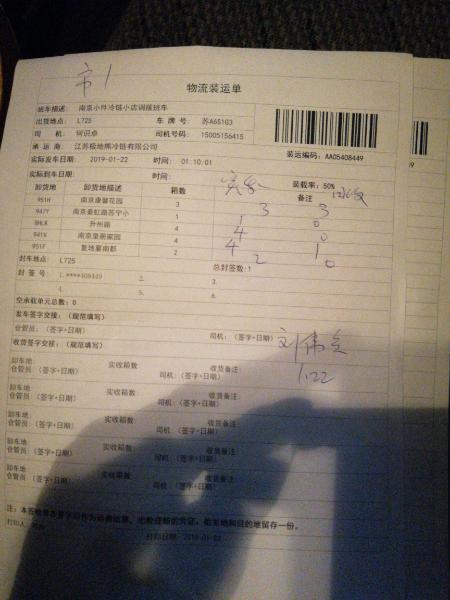 市1
物流装运单
班车描述: 南京小件冷链小店调拨班车
出货地点: L725 车 牌 号: 苏A6S1G3
司 机: 何识卓 司机号码: 15005156415
承 运 商: 江苏极地熊冷链有限公司 装运编码: AA05408449
实际发车日期: 2019-01-22 时间: 01:10:01
实际到车日期: 时间: 装载率: 50%
卸货地 卸货地描述 箱数 实发 备注 回收
951H 南京康馨花园 3 3 3
947Y 南京秦虹路苏宁小 1 1 0
8HLK 升州路 4 4 0
941V 南京皇册家园 4 4 1
951F 复地宴南都 2 2 0
封车地点: L725 总封签数:1
封 签 号 1.****408449 2. 3.
4. 5. 6.
空承载单元总数: 0
发车签字交接: (规范填写)
仓管员: (签字+日期) 司机: (签字+日期)
收货签字交接: (规范填写) 1.22
卸车地: 实收箱数: 收货备注:
仓管员: (签字+日期) 司机: (签字+日期)
卸车地: 实收箱数: 收货备注:
仓管员: (签字+日期) 司机: (签字+日期)
卸车地: 实收箱数: 收货备注:
仓管员: (签字+日期) 司机: (签字+日期)
卸车地: 实收箱数: 收货备注:
仓管员: (签字+日期) 司机: (签字+日期)
卸车地: 实收箱数: 收货备注:
仓管员: (签字+日期) 司机: (签字+日期)
打印日期: 2019-01-22